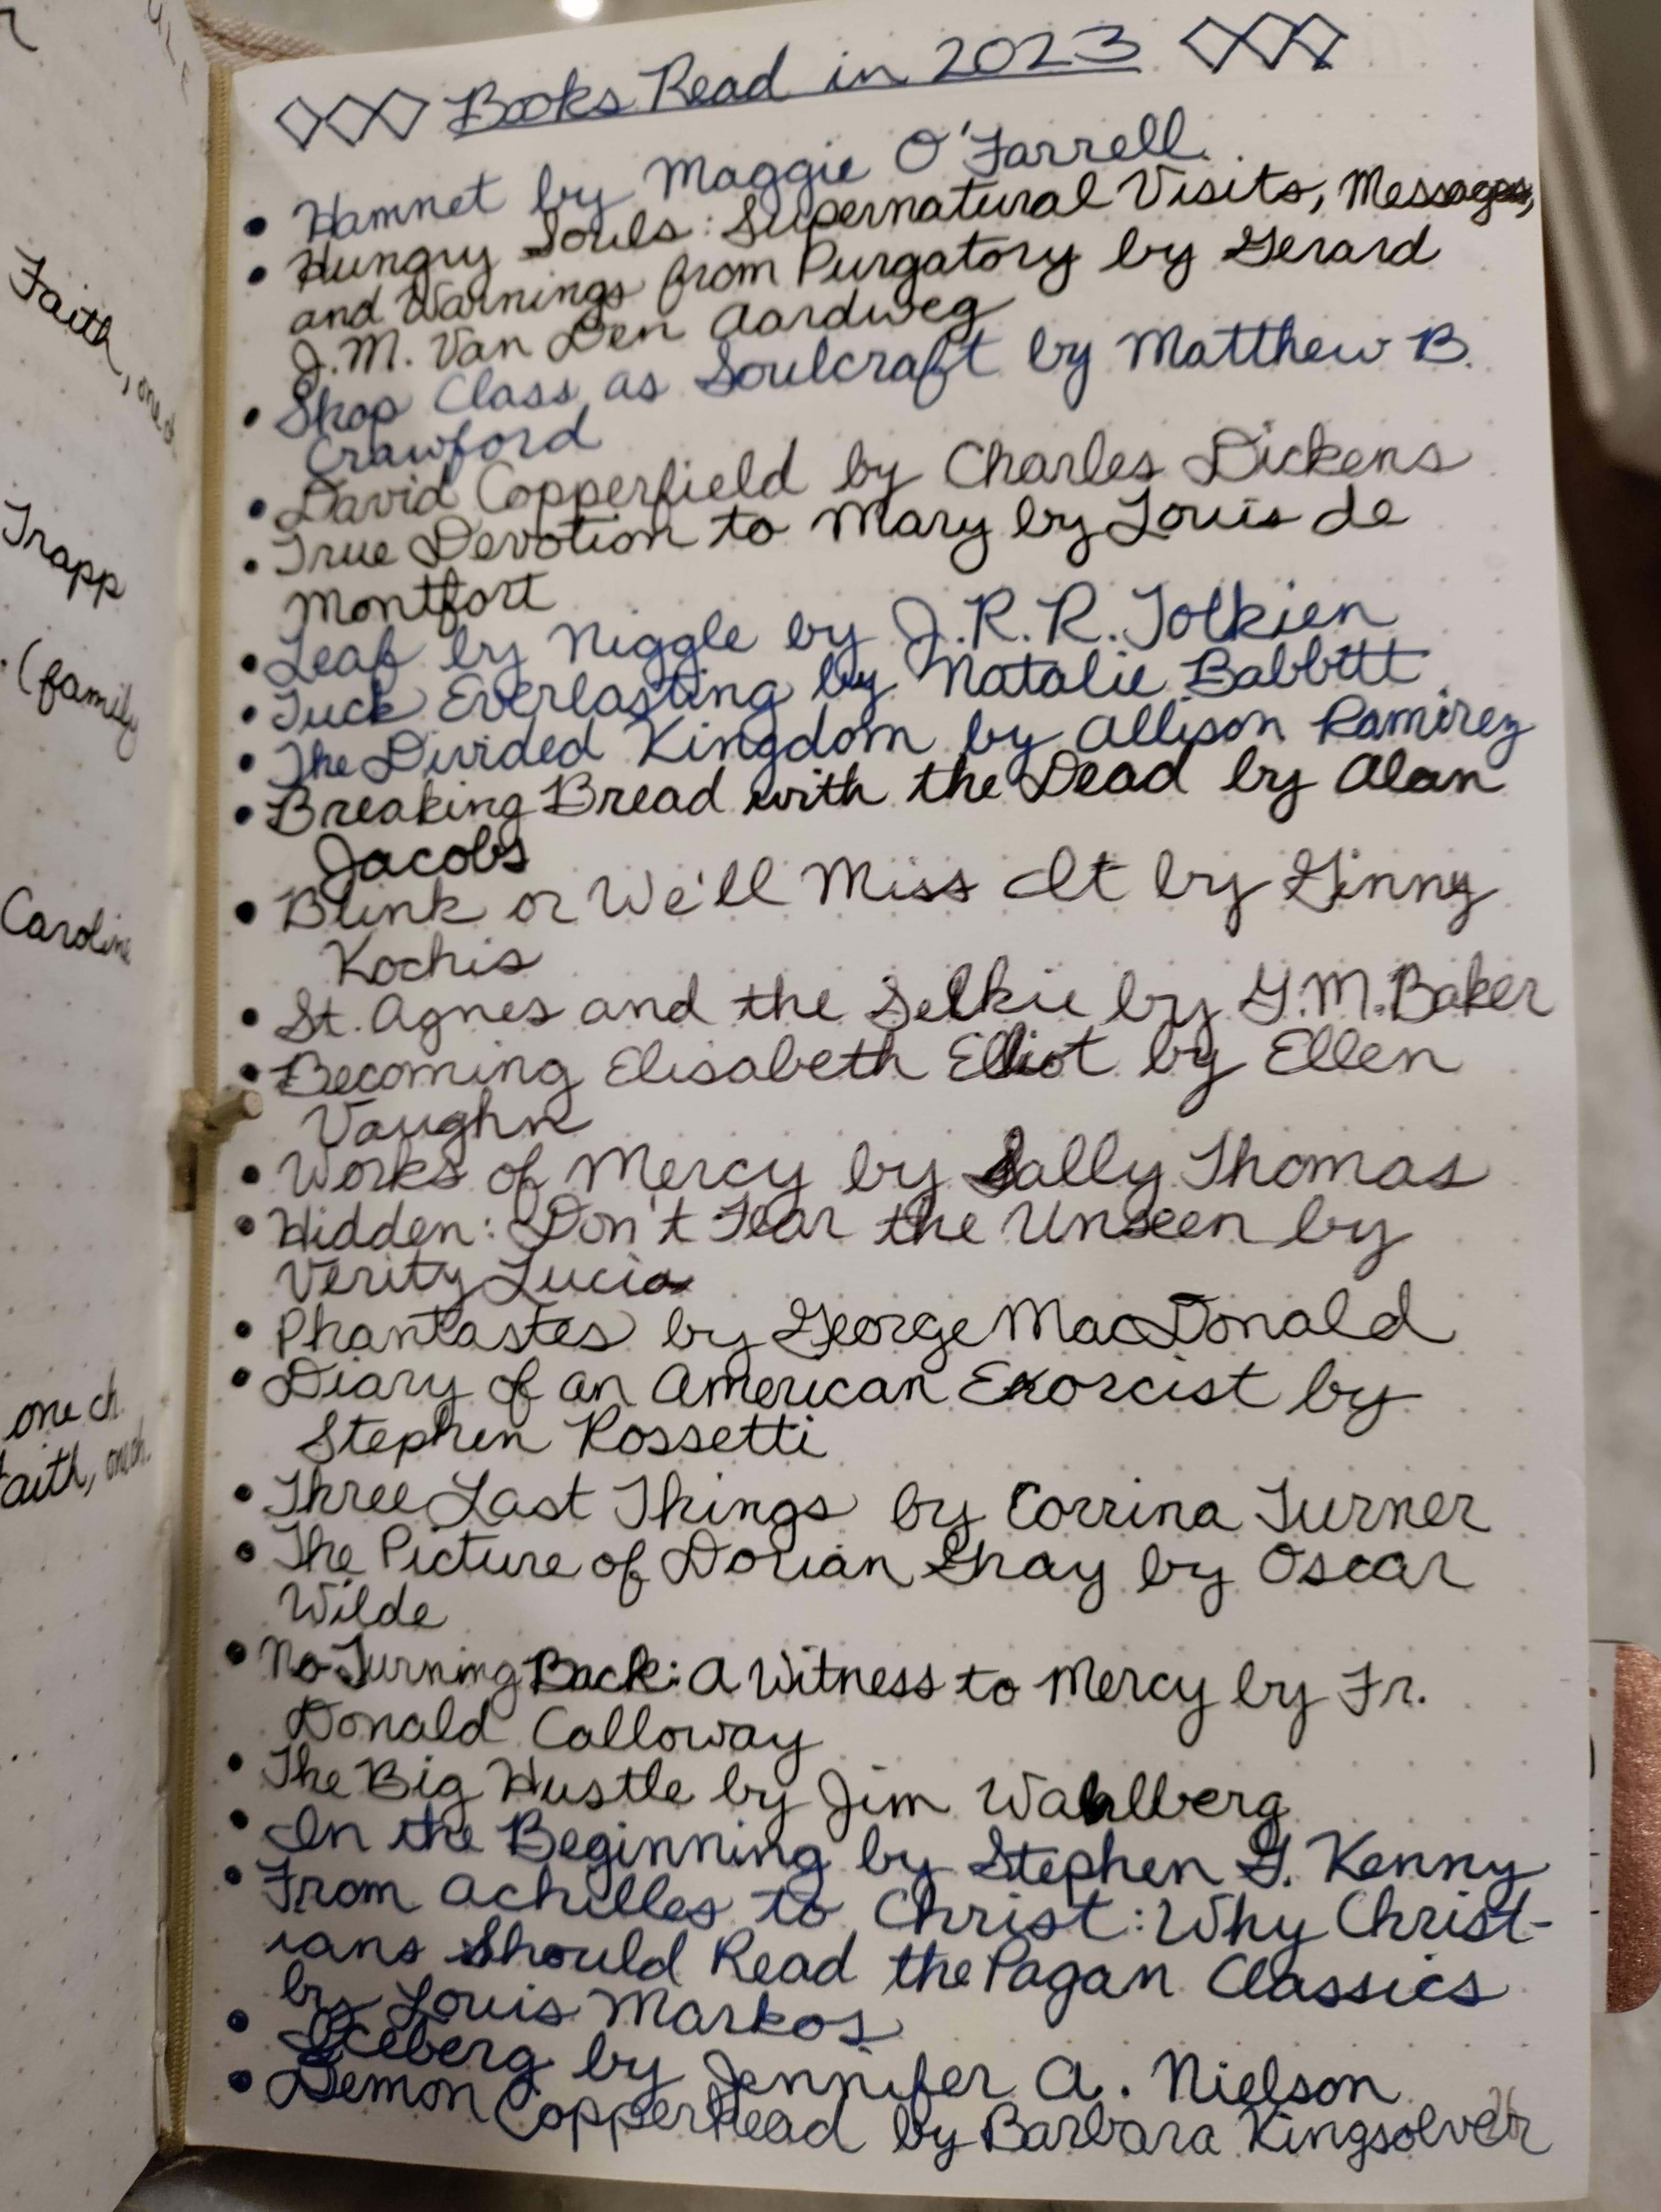 Books Read in 2023
• Hamnet by Maggie O'Farrell
• Hungry Souls: Supernatural Visits, Messages,
and Warnings from Purgatory by Gerard
J.M. Van Den Aardweg
• Shop Class as Soulcraft by Matthew B.
Crawford
• David Copperfield by Charles Dickens
• True Devotion to Mary by Louis de
Montfort
• Leaf by Niggle by J.R.R. Tolkien
• Tuck Everlasting by Natalie Babbitt
• The Divided Kingdom by Allison Ramirez
• Breaking Bread with the Dead by Alan
Jacobs
• Blink or We'll Miss It by Ginny
Kochis
• St. Agnes and the Selkie by G.M. Baker
• Becoming Elisabeth Elliot by Ellen
Vaughn
• Works of Mercy by Sally Thomas
• Hidden: Don't Fear the Unseen by
Verity Lucia
• Phantastes by George MacDonald
• Diary of an American Exorcist by
Stephen Rossetti
• Three Last Things by Corrina Turner
• The Picture of Dorian Gray by Oscar
Wilde
• No Turning Back: A Witness to Mercy by Fr.
Donald Calloway
• The Big Hustle by Jim Wahlberg
• In the Beginning by Stephen G. Kenny
• From Achilles to Christ: Why Christ-
ians Should Read the Pagan Classics
by Louis Markos
• Iceberg by Jennifer A. Nielson
• Demon Copperhead by Barbara Kingsolver
26
Faith, one ch
Trapp
(family
Caroline
one ch.
Faith, one ch.